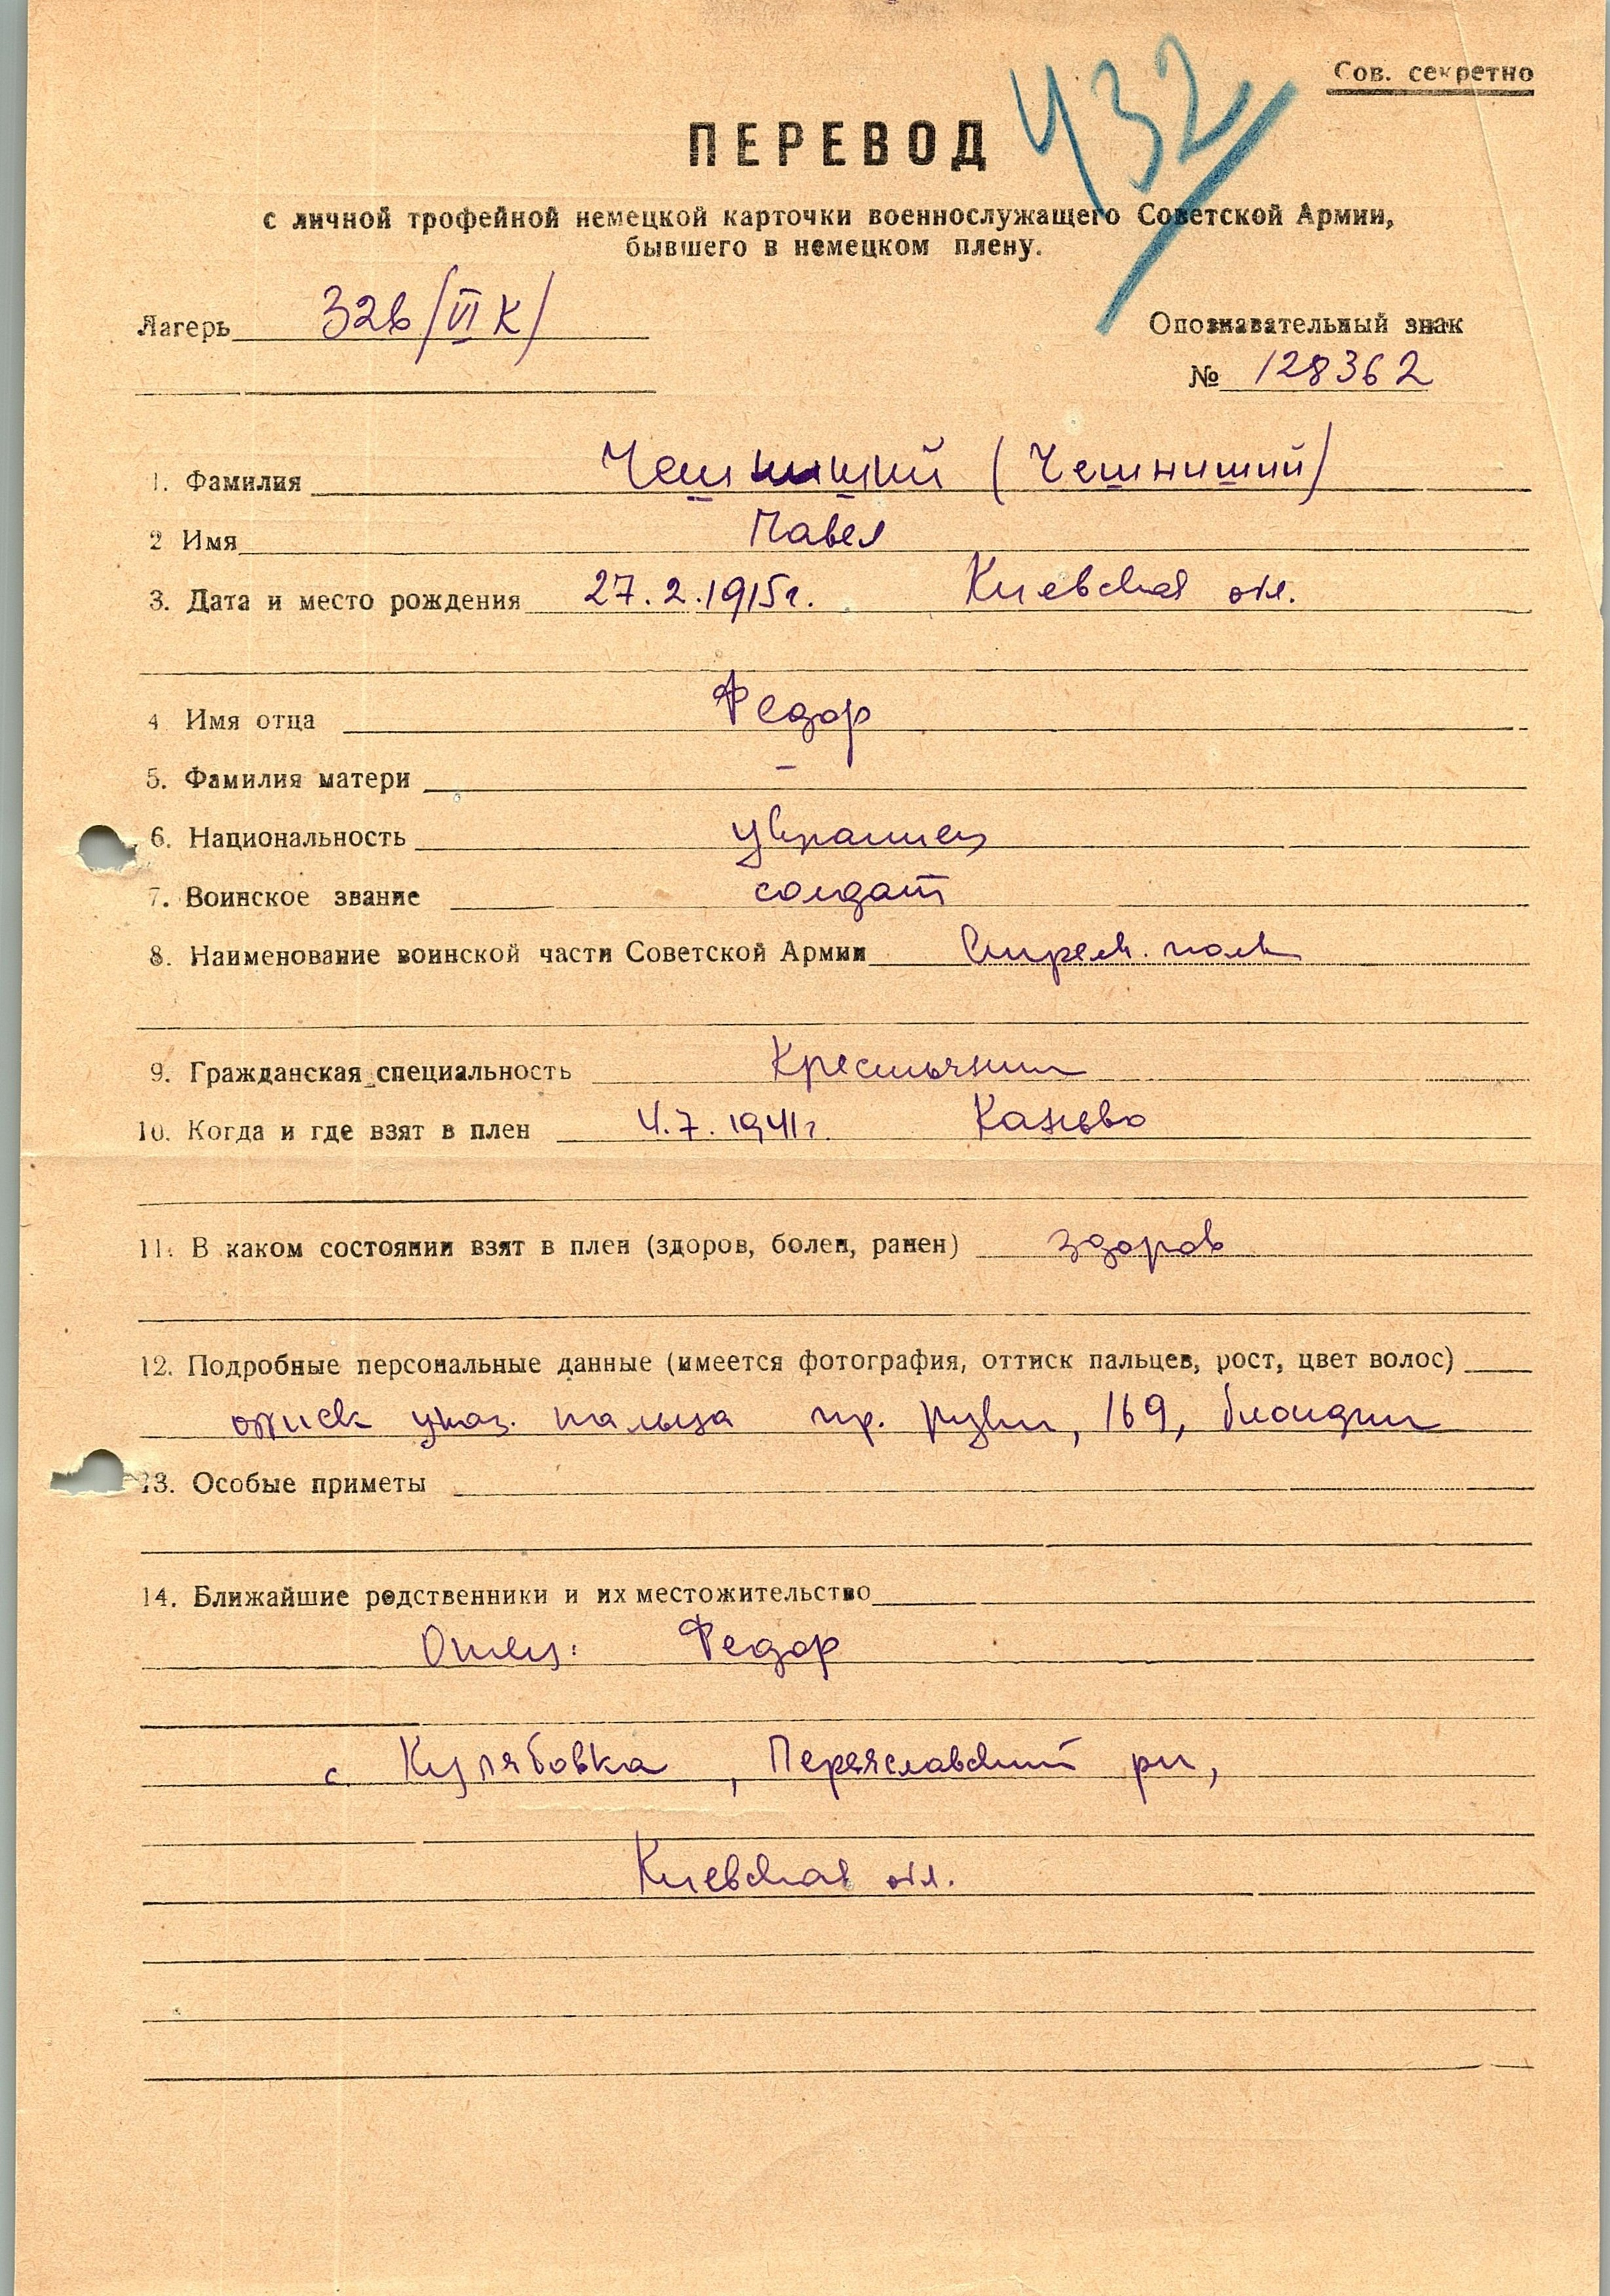 432
Сов. секретно
ПЕРЕВОД
с личной трофейной немецкой карточки военнослужащего Советской Армии,
бывшего в немецком плену.
Лагерь 326/VI К/
Опознавательный знак
№ 128362
1. Фамилия Чешницкий (Чешниший)
2 Имя Павел
3. Дата и место рождения 27.2.1915г. Киевская обл.
4 Имя отца Федор
5. Фамилия матери –
6. Национальность украинец
7. Воинское звание солдат
8. Наименование воинской части Советской Армии Стрелк. полк
9. Гражданская специальность Крестьянин
10. Когда и где взят в плен 4.7.1941г. Канево
11. В каком состоянии взят в плен (здоров, болен, ранен) здоров
12. Подробные персональные данные (имеется фотография, оттиск пальцев, рост, цвет волос)
оттиск указ. пальца пр. руки, 169, блондин
13. Особые приметы
14. Ближайшие родственники и их местожительство
Отец: Федор
с. Кулябовка, Переяславский рн,
Киевская обл.